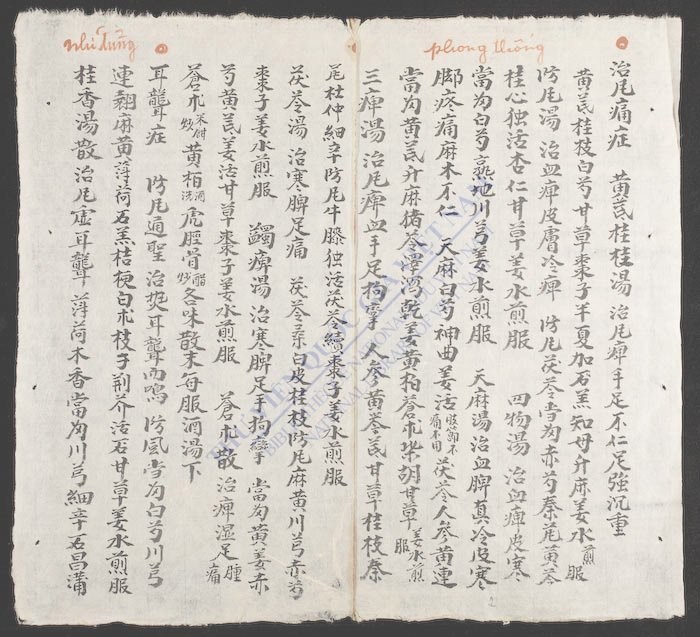 phong thống
治風痛症 黄芪桂桂湯 治風痺手足不仁足強沉重
黄芪桂枝白芍甘草棗子半夏加石羔知母升麻姜水煎服
防風湯 治血痺皮膚冷痺 防風茯苓當匀赤芍秦艽黄芩
桂心独活杏仁甘草姜水煎服 四物湯 治血痺皮寒
當匀白芍熟地川芎姜水煎服 天麻湯治血脾真冷皮寒
脚疼痛麻木不仁 天麻白芍神曲姜活肢節不痛不用茯苓人參黄連
當匀黄芪升麻猪苓澤瀉乾姜黄柏蒼朮柴胡甘草姜水煎服
三痺湯 治風痺血手足拘攣 人參黄芩芪甘草桂枝秦
nhĩ lũng
艽杜仲細辛防風牛膝独活茯苓續棗子姜水煎服
茯苓湯 治寒脾足痛 茯苓桑白皮桂枝防風麻黄川芎赤芍
棗子姜水煎服 蠲痺湯 治寒脾足手拘攣 當匀黄姜赤
芍黄芪姜活甘草棗子姜水煎服 蒼朮散 治痺湿足腫痛
蒼朮米泔炒黄栢酒洗虎脛骨醋炒各味散末每服酒湯下
耳聾症 防風通聖 治耳聾而鳴 防風當匀白芍川芎
連翹麻黄薄荷石羔桔梗白朮枝子荆芥活石甘草姜水煎服
桂香湯散 治風虚耳聾 薄荷木香當匀川芎細辛石昌蒲